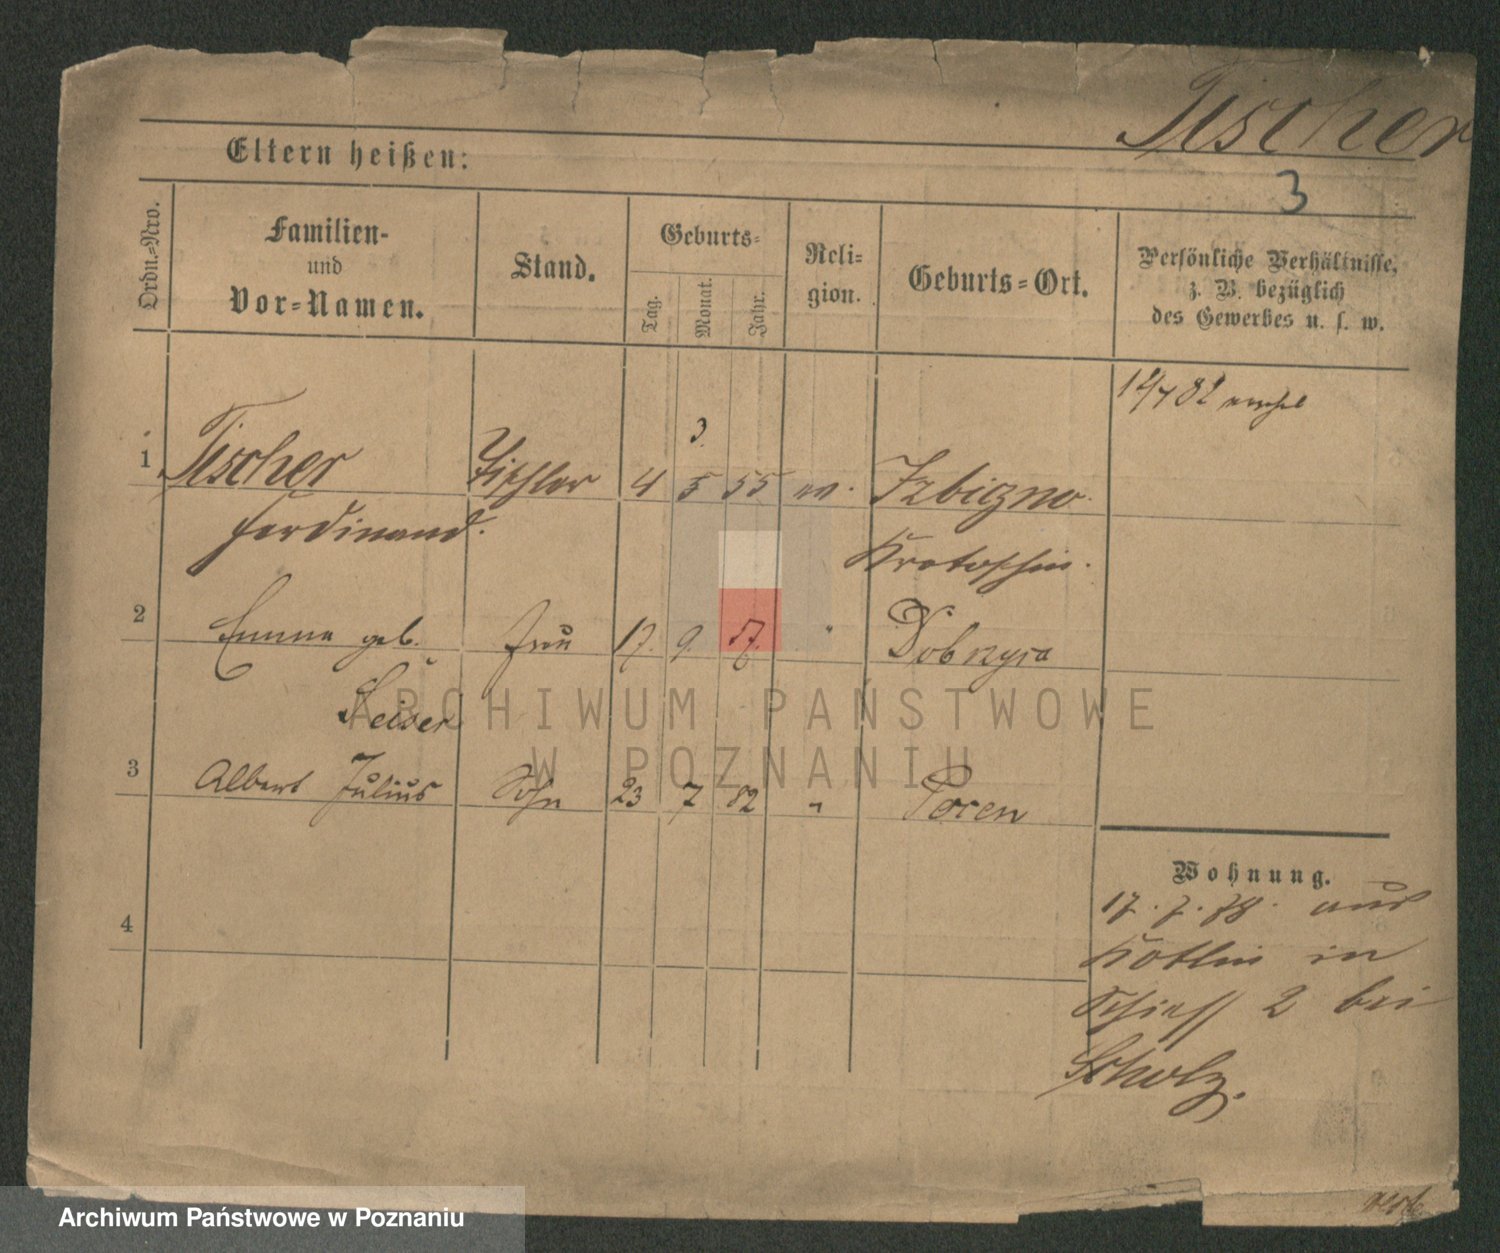 Tischer
Eltern heißen:
3
Ordn.-Nro.
Familien-
und
Vor-Namen.
Stand.
Geburts-
Tag.
Monat.
Jahr.
Reli-
gion.
Geburts-Ort.
Persönliche Verhältnisse,
z. B. bezüglich
des Gewerbes u. s. w.
82
3.
1 Tischer Tischler 4 5 55 Izbiczno
Ferdinand. Krotoschin.
2 Emma geb. Frau 17. 9. 57. "
3 Albert Julius Sohn 23 7 82 " Posen
4
Wohnung.
17.7.78. aus
Kotlin in
2 bei
Scholz.
ARCHIWUM PAŃSTWOWE
W POZNANIU
Archiwum Państwowe w Poznaniu